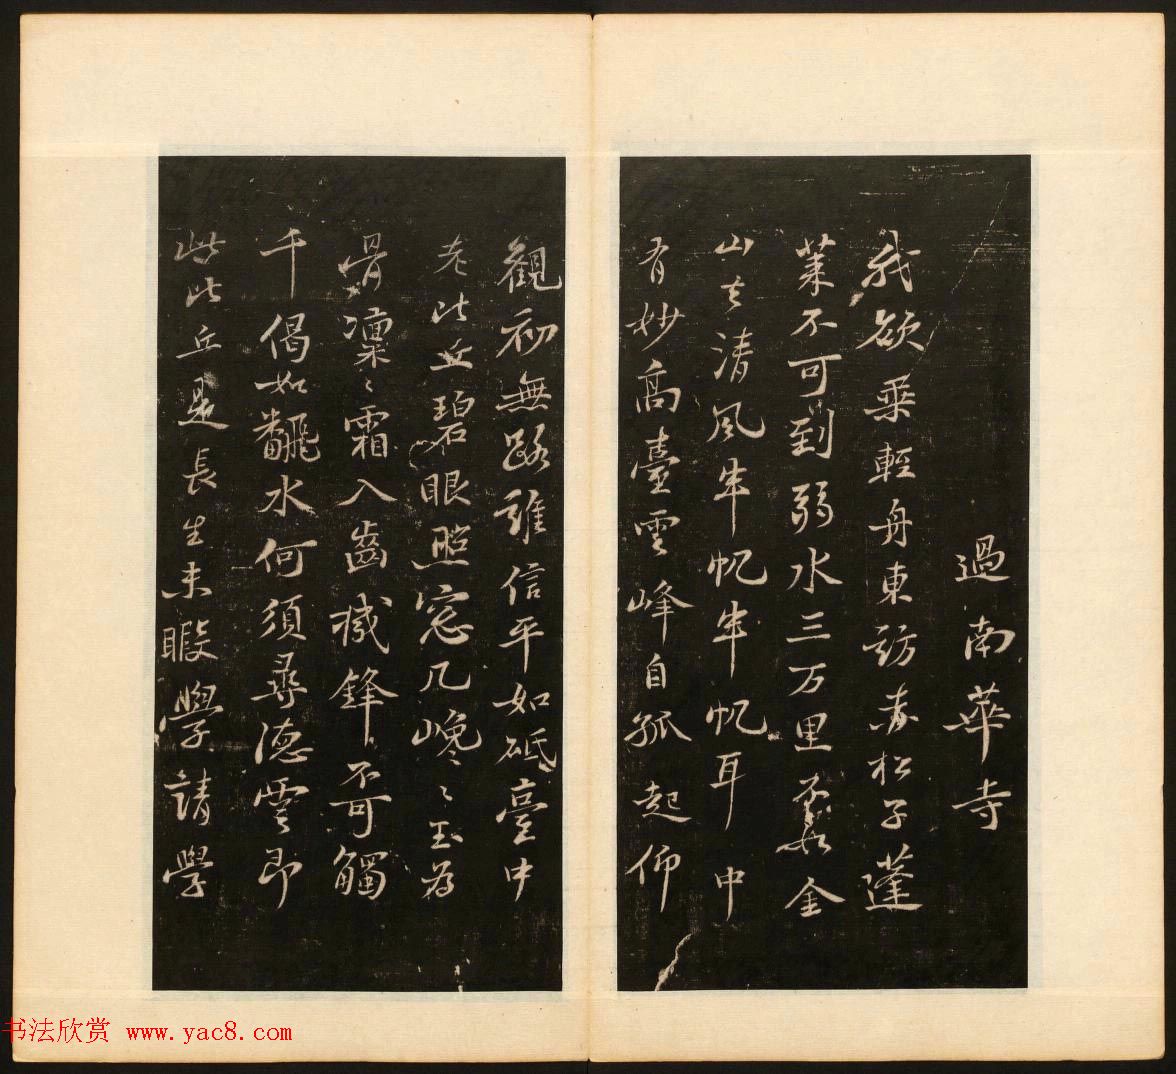 過南華寺
我欲乘輕舟東訪赤松子蓬
萊不可到弱水三万里不如金
山去清風半帆半帆耳中
有妙高臺雲峰自孤起仰
觀初無路誰信平如砥臺中
老比丘碧眼照窓几巉〻玉為
骨凜〻霜入齒機鋒不可觸
千偈如翻水何須尋德雲即
此比丘是長生未暇學請學
书法欣赏 www.yac8.com